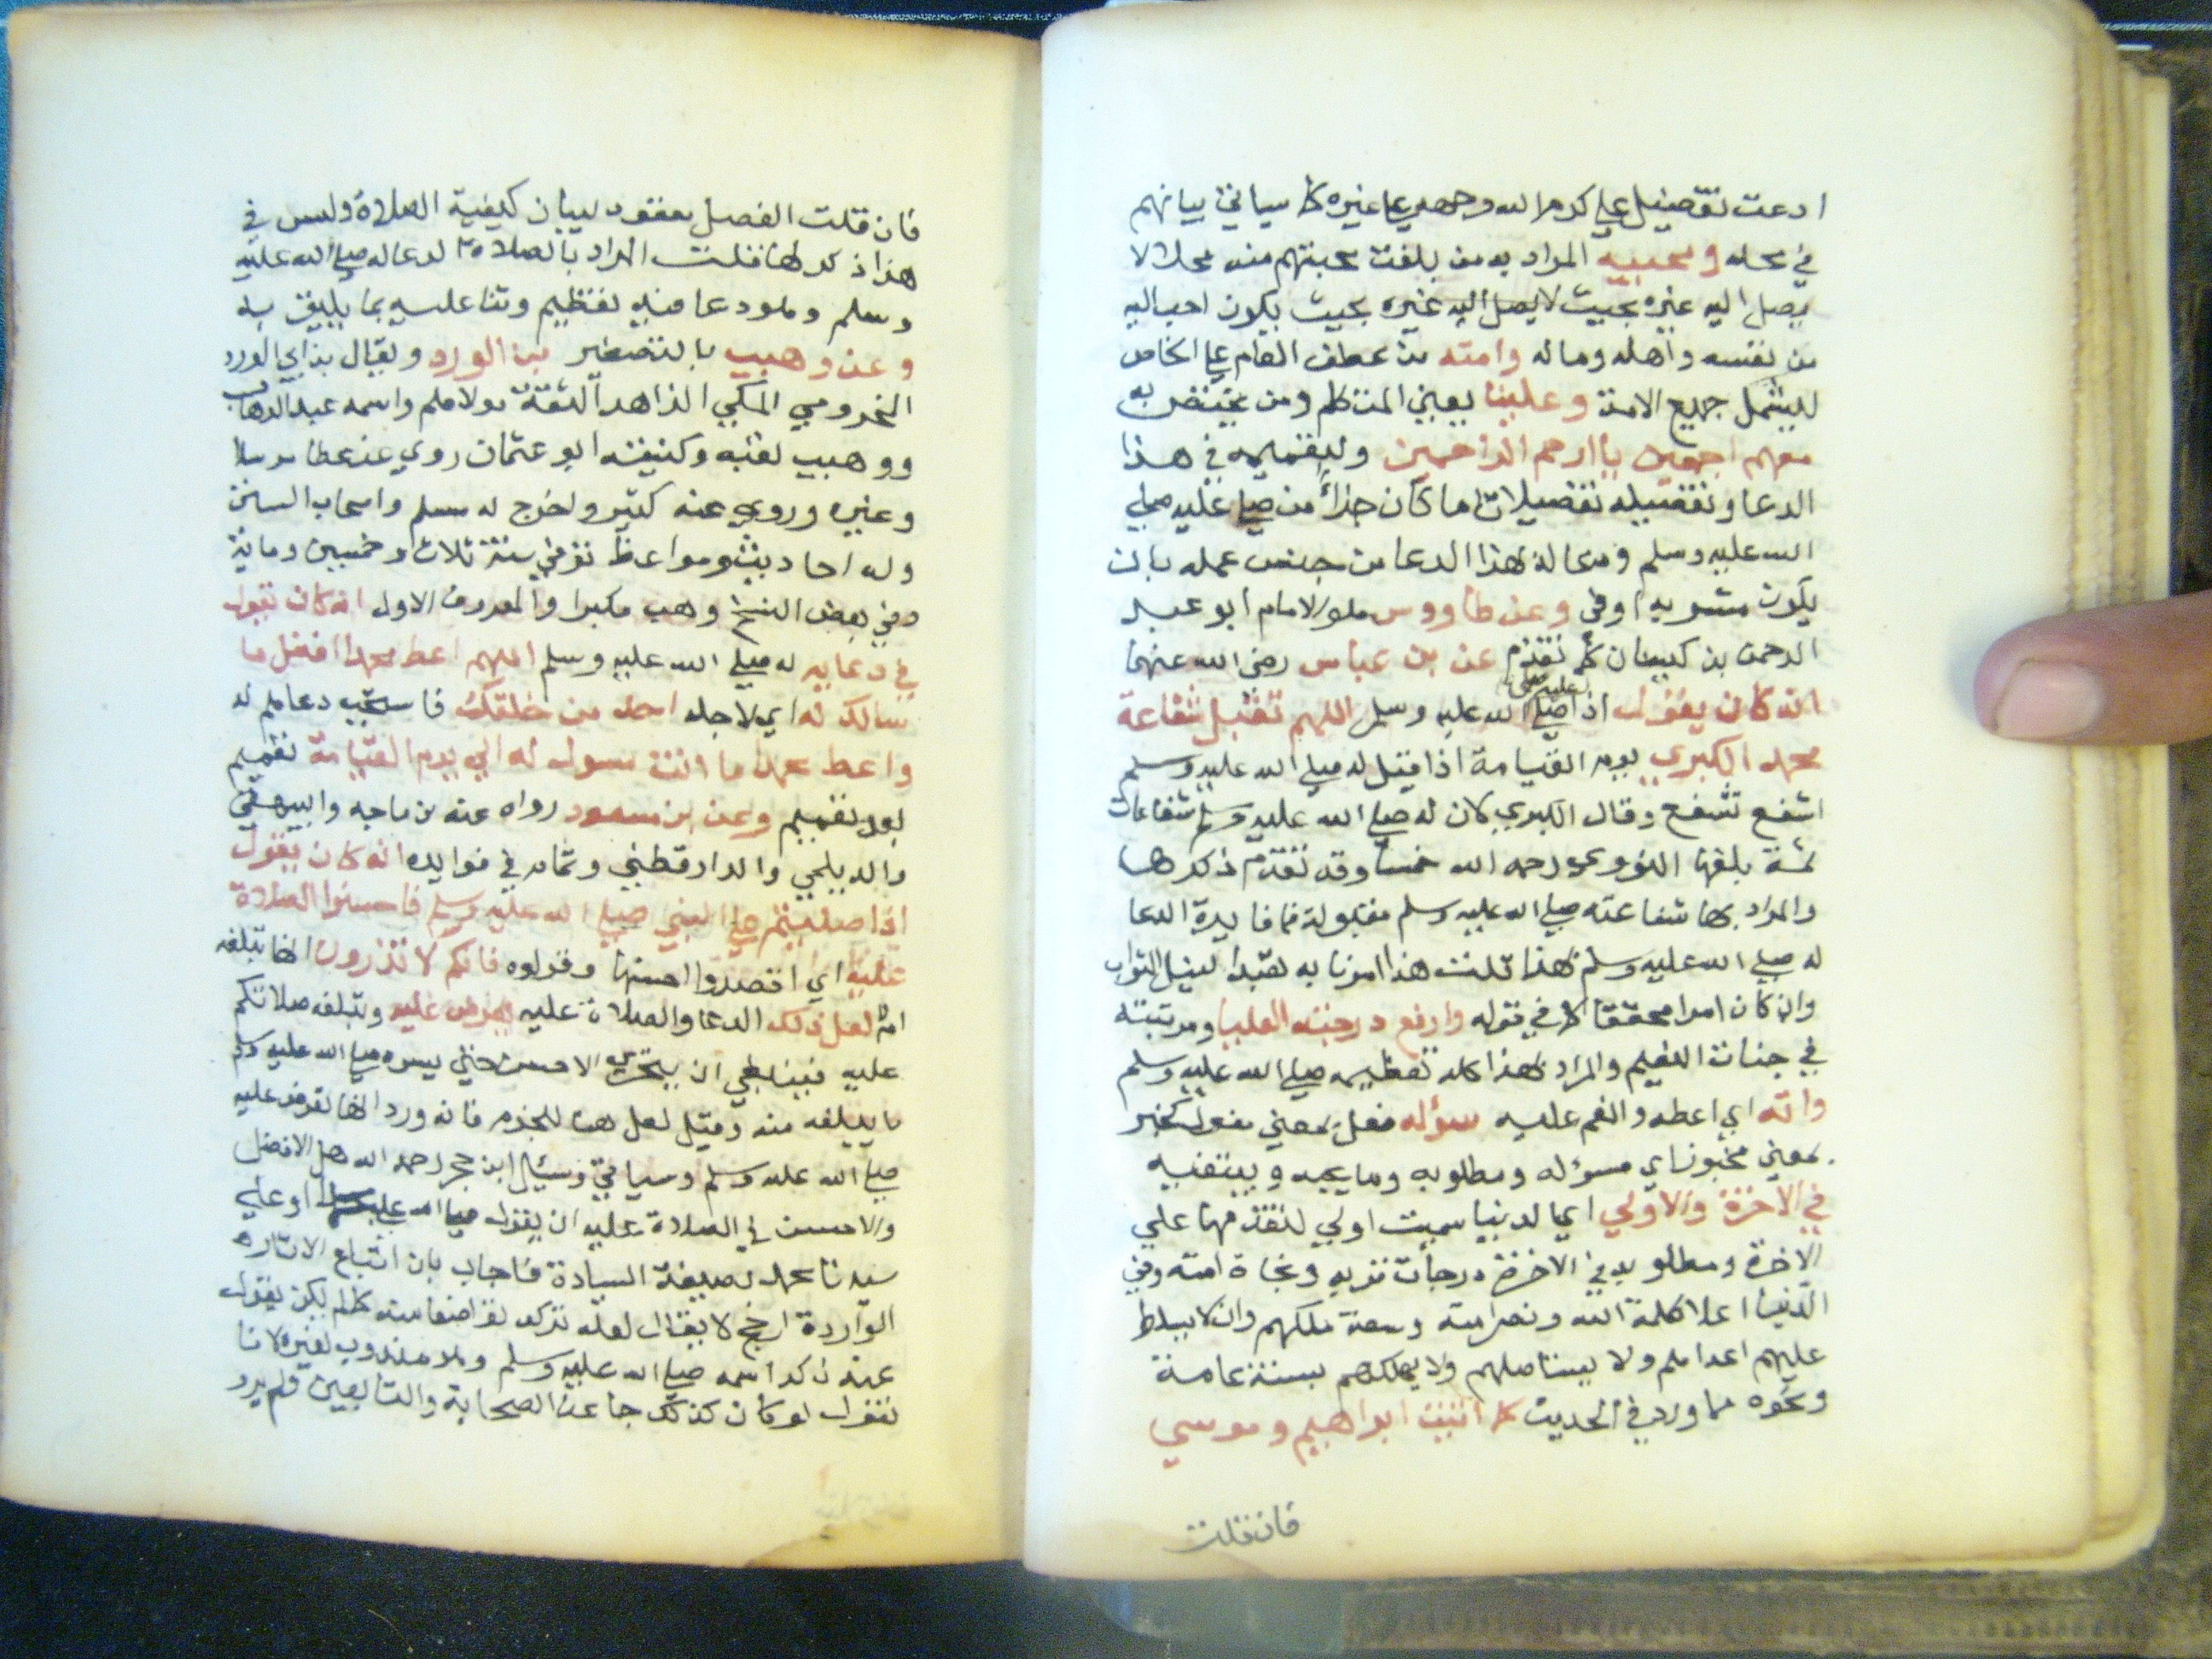 ادعت تفضيل علي كرم الله وجهه علي غيره كما سياتي بيانهم
في محله ومحبيه المراد به من بلغت محبتهم منه محلا لا
يصل اليه غيره بحيث لا يصل اليه غيره بحيث يكون احب اليه
من نفسه واهله وماله وامته من عطف العام علي الخاص
ليشمل جميع الامة وعلينا يعني المتكلم ومن يختص به
معهم اجمعين يا ارحم الراحمين ولتعميمه في هذا
الدعا وتفصيله تفصيلا تاما كان جزاء من صلي عليه صلي
الله عليه وسلم ودعا له بهذا الدعا من جنس عمله بان
يكون مشربه اوفي وعن طاووس هو الامام ابو عبد
الرحمن بن كيسان كما تقدم عن بن عباس رضي الله عنهما
انه كان يقول اذا صلي عليه صلي الله عليه وسلم اللهم تقبل شفاعة
محمد الكبري يوم القيامة اذا قيل له صلي الله عليه وسلم
اشفع تشفع وقال الكبري كان له صلي الله عليه وسلم شفاعات
ثمة بلغها النووي رحمه الله خمسا وقد تقدم ذكرها
والمراد بها شفاعته صلي الله عليه وسلم مقبولة فما فايدة الدعا
له صلي الله عليه وسلم بهذا قلت هذا امرنا به تعبدا لنيل الثواب
وان كان امرا محققا كما في قوله وارفع درجته العليا ومرتبته
في جنات النعيم والمراد بهذا كله تعظيمه صلي الله عليه وسلم
واته اي اعطه وانعم عليه سؤله فعل بمعني مفعول كخبز
بمعني مخبوز اي مسؤله ومطلوبه وما يحبه ويبتغيه
في الاخرة والاولي اي الدنيا سميت اولي لتقدمها علي
الاخرة ومطلوبه في الاخرة درجات قربه ونجاة امته وفي
الدنيا اعلا كلمة الله ونصر امته وسعة ملكهم وان لا يسلط
عليهم اعداهم ولا يستاصلهم ولا يهلكهم بسنة عامة
ونحوه مما ورد في الحديث كما اتيت ابراهيم وموسي
فان قلت
فان قلت الفصل معقود لبيان كيفية الصلاة وليس في
هذا ذكر لها قلت المراد بالصلاة الدعا له صلي الله عليه
وسلم وهو دعا فيه تعظيم وثنا عليه بما يليق به
وعن وهيب بالتصغير بن الورد ويقال بن ابي الورد
المخزومي المكي الزاهد الثقة مولاهم واسمه عبد الوهاب
ووهيب لقبه وكنيته ابو عثمان روي عن عطا مرسلا
وغيره وروي عنه كثير واخرج له مسلم واصحاب السنن
وله احاديث ومواعظ توفي سنة ثلاث وخمسين ومايه
وفي بعض النسخ وهب مكبرا والمعروف الاول انه كان يقول
في دعايه له صلي الله عليه وسلم اللهم اعط محمدا افضل ما
سالك له اي لاجله احد من خلقك فاستجب دعاهم له
واعط محمدا ما انت مسول له الي يوم القيامة تعميم
بعد تعميم وعن بن مسعود رواه عنه بن ماجه والبيهقي
والديلمي والدارقطني وتمام في فوايده انه كان يقول
اذا صليتم علي النبي صلي الله عليه وسلم فاحسنوا الصلاة
عليه اي اقصدوا احسنها وقولوه فانكم لا تدرون انها تبلغه
ام لا لعل ذلك الدعا والصلاة عليه يعرض عليه وتبلغه صلاتكم
عليه فينبغي ان يتحري الاحسن حتي يسره صلي الله عليه وسلم
ما يبلغه منه وقيل لعل هنا للجزم فانه ورد انها تعرض عليه
صلي الله عليه وسلم وسياتي وسئل ابن حجر رحمه الله هل الافضل
والاحسن في الصلاة عليه ان يقول صلي الله عليه وسلم او علي
سيدنا محمد بصيغة السيادة فاجاب بان اتباع الاثار
الواردة ارجح لا يقال لعله تركه تواضعا منه كما لم يكن يقول
عند ذكر اسمه صلي الله عليه وسلم وهو مندوب لغيره لانا
نقول لو كان كذلك جا عن الصحابة والتابعين فلم يرد